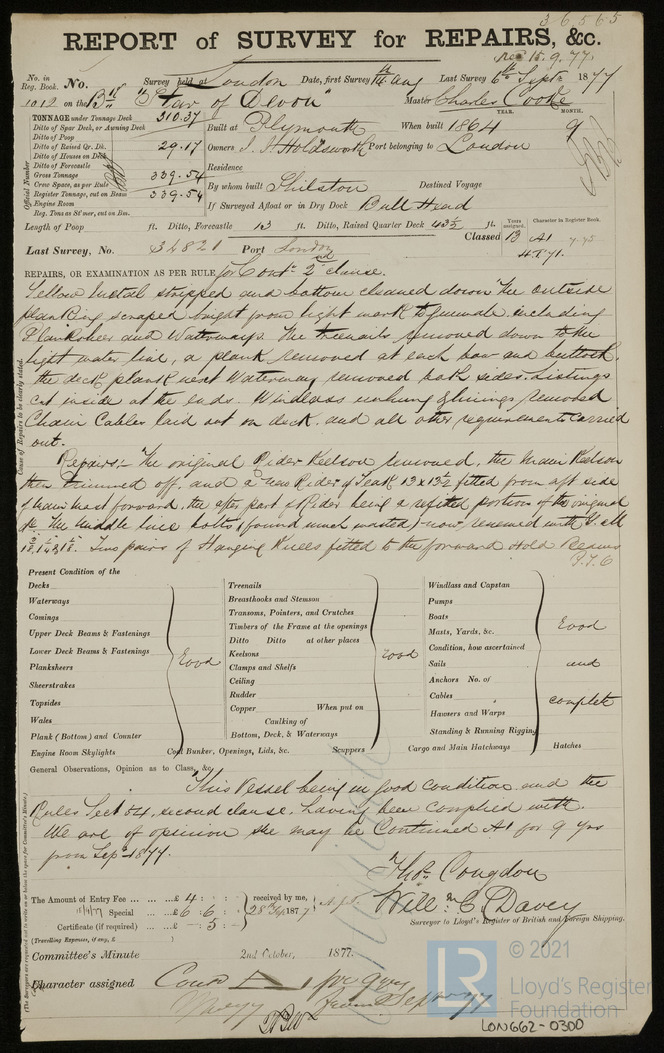 36565
REPORT of SURVEY for REPAIRS, &c.
Rec 15.9.77
No. in Reg. Book. No. Survey held at London Date, first Survey 14th Aug Last Survey 6th Sept 1877
1012 on the "Star of Devon" Master Charles Cooke
TONNAGE under Tonnage Deck 310.37
Ditto of Spar Deck, or Awning Deck
Ditto of Poop
Ditto of Raised Qr. Dk. 29.17
Ditto of Houses on Deck
Ditto of Forecastle
Gross Tonnage 339.54
Crew Space, as per Rule
Register Tonnage, cut on Beam 339.54
Engine Room
Reg. Tons as St'mer, cut on Bm.
Official Number
YEAR. MONTH.
Built at Plymouth When built 1864 9
Owners Holdsworth Port belonging to London
Residence
By whom built Shilston Destined Voyage
If Surveyed Afloat or in Dry Dock Bull Head
Length of Poop ft. Ditto, Forecastle 13 ft. Ditto, Raised Quarter Deck 43½ ft.
Years assigned. Character in Register Book.
Classed 13 A1 7.75
Last Survey, No. 34821 Port London
REPAIRS, OR EXAMINATION AS PER RULE, for Contn 2nd clause.
Cause of Repairs to be clearly stated.
Yellow Metal stripped and bottom cleaned down The outside
planking scraped bright from light mark to gunwale including
Planksheer and Waterways. The treenails removed down to the
light water line, a plank removed at each bow and buttock,
the deck plank next Waterway removed both sides. Listings
cut inside at the ends. Windlass linings removed
Chain Cables laid out on deck. and all other requirements carried
out.
Repairs:- The original Rider Keelson removed, the Main Keelson
then trimmed off, and a new Rider of Teak 13 x 13½ fitted from aft side
of Main Mast forward, the after part of Rider being a refitted portion of the original
The Middle line bolts (found much wasted) now renewed with Y.M
Two pairs of Hanging Knees fitted to the forward Hold Beams
P.T.O
Present Condition of the
Decks
Waterways
Comings
Upper Deck Beams & Fastenings
Lower Deck Beams & Fastenings
Planksheers
Sheerstrakes
Topsides
Wales
Plank (Bottom) and Counter
Good
Treenails
Breasthooks and Stemson
Transoms, Pointers, and Crutches
Timbers of the Frame at the openings
Ditto Ditto at other places
Keelsons
Clamps and Shelfs
Ceiling
Rudder
Copper When put on
Caulking of Bottom, Deck, & Waterways
Good
Windlass and Capstan
Pumps
Boats
Masts, Yards, &c.
Condition, how ascertained
Sails
Anchors No. of
Cables
Hawsers and Warps
Standing & Running Rigging
Good
and
complete
Engine Room Skylights Coal Bunker, Openings, Lids, &c. Scuppers Cargo and Main Hatchways Hatches
General Observations, Opinion as to Class, &c.
This Vessel being in good condition and the
Rules Sect 54, second clause, having been complied with.
We are of opinion she may be Continued A1 for 9 yrs
from Sepr 1877.
Thos. Congdon
Willm C. Davey
Surveyor to Lloyd's Register of British and Foreign Shipping.
The Amount of Entry Fee ... ... £ 4 : :
Special ... £ 6 . 6 :
Certificate (if required) ... £ - 5 :
(Travelling Expenses, if any, £ )
received by me,
28th Sep 1877
Committee's Minute 2nd October, 1877.
Character assigned Contd A1 for 9 yrs
© 2021
LR
Lloyd's Register
Foundation
LON662-0300